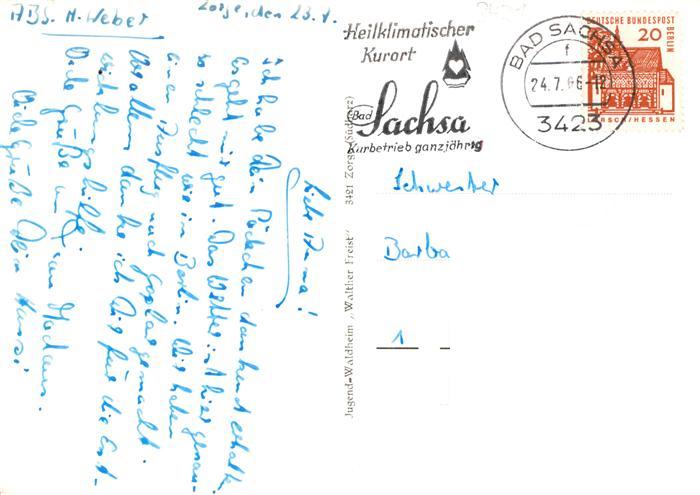 Abs. H. Weber
Zorge, den 23.7.
Liebe Anna!
Ich habe Dein Päckchen dankend erhalten.
Es geht mir gut. Das Wetter ist hier genau-
so schlecht wie in Berlin. Wir haben
einen Ausflug nach Goslar gemacht.
Vor allem danke ich Dir für die Erst-
Viele Grüße
Viele Grüße Dein
Heilklimatischer
Kurort
Bad Sachsa
Kurbetrieb ganzjährig
BAD SACHSA
f
24.7.66-12
3423
DEUTSCHE BUNDESPOST BERLIN
20
LORSCH/HESSEN
Schwester
Barba
1
3421 Zorge (Südharz)
Jugend-Waldheim „Walther Freist"